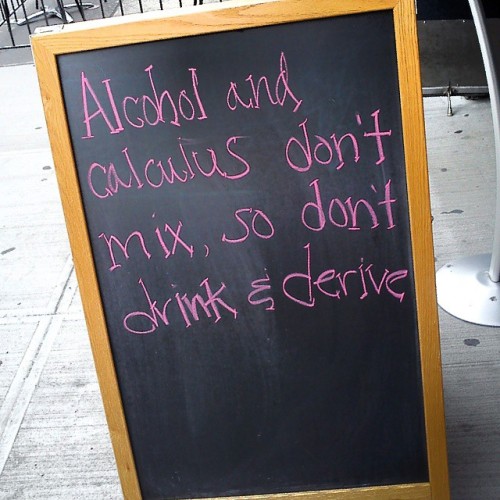 Alcohol and
calculus don't
mix, so don't
drink & derive